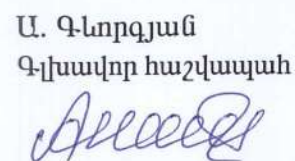 Ա. Գևորգյան
Գլխավոր հաշվապահ